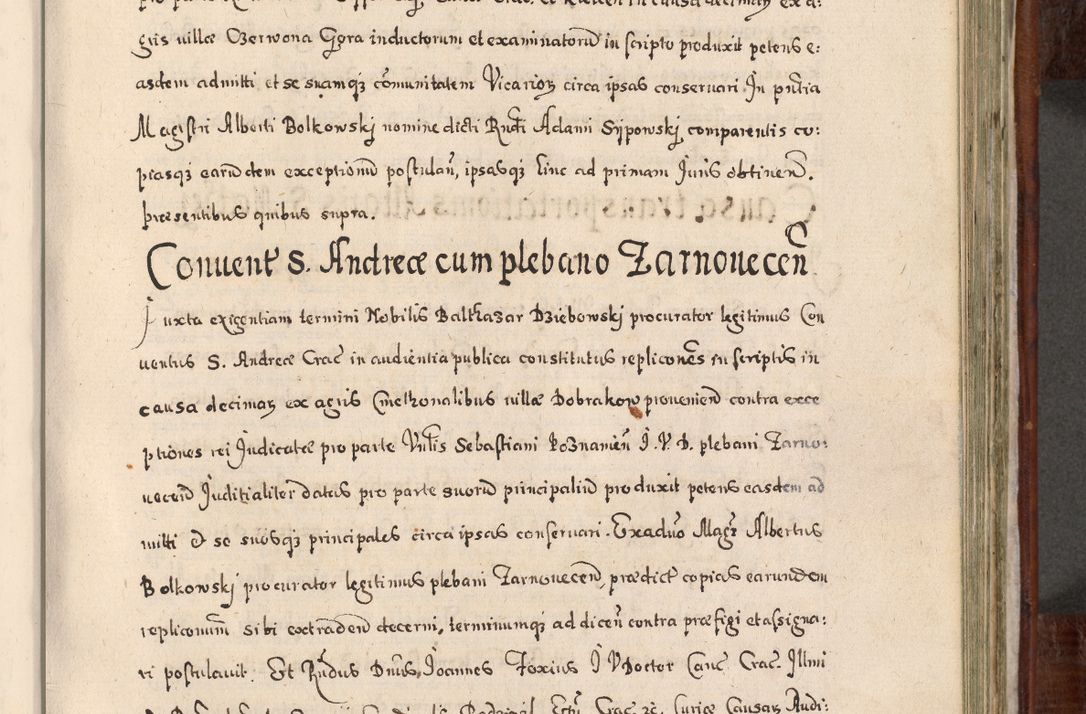 gris villæ Czerwona Gora inductorum et examinatorū in scripto produxit petens e:
asdem admitti et se suamqȝ cōmunitatem Vicarioȝ circa ipsas conservari In pntia
Magistri Alberti Bolkowskj nomine dicti Rndi Adami Sijpowskj comparentis co:
piasqȝ earūdem exceptionū postulan̄, ipsasqȝ hinc ad primam Juris obtinen̄.
præsentibus quibus supra.
Convent S. Andreæ cum plebano Zarnovecen̄
Juxta exigentiam termini Nobilis Balthazar Dziebowskj procurator legitimus Con
ventus S. Andreæ Crac̄ in audientia publica constitutus replicōnes in scriptis in
causa decimaȝ ex agris Cmethonalibus villæ Dobrakow provenien̄ contra exce
ptiones rei Judicatæ pro parte Vnlis Sebastiani Poznanien̄ J. V. D. plebani Zarno:
vecen̄ Juditialiter datas pro parte suorū principaliū produxit petens easdem ad
mitti & se suosqȝ principales circa ipsas conservari. Exadūo Magr̄ Albertus
Bolkowskj procurator legitimus plebani Zarnovecen̄, prædict̄ copias earundem
replicōnum sibi extraden̄ decerni, terminumqȝ ad dicen̄ contra præfigi et assigna:
ri postulavit. Et Rn̄dus Dn̄us Joannes Foxius J V Doctor Canc̄ Crac̄. Illmi